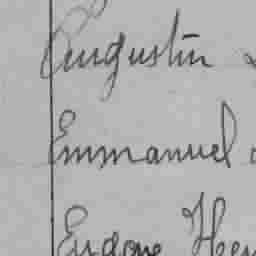 Augustin
Emmanuel
Eugène